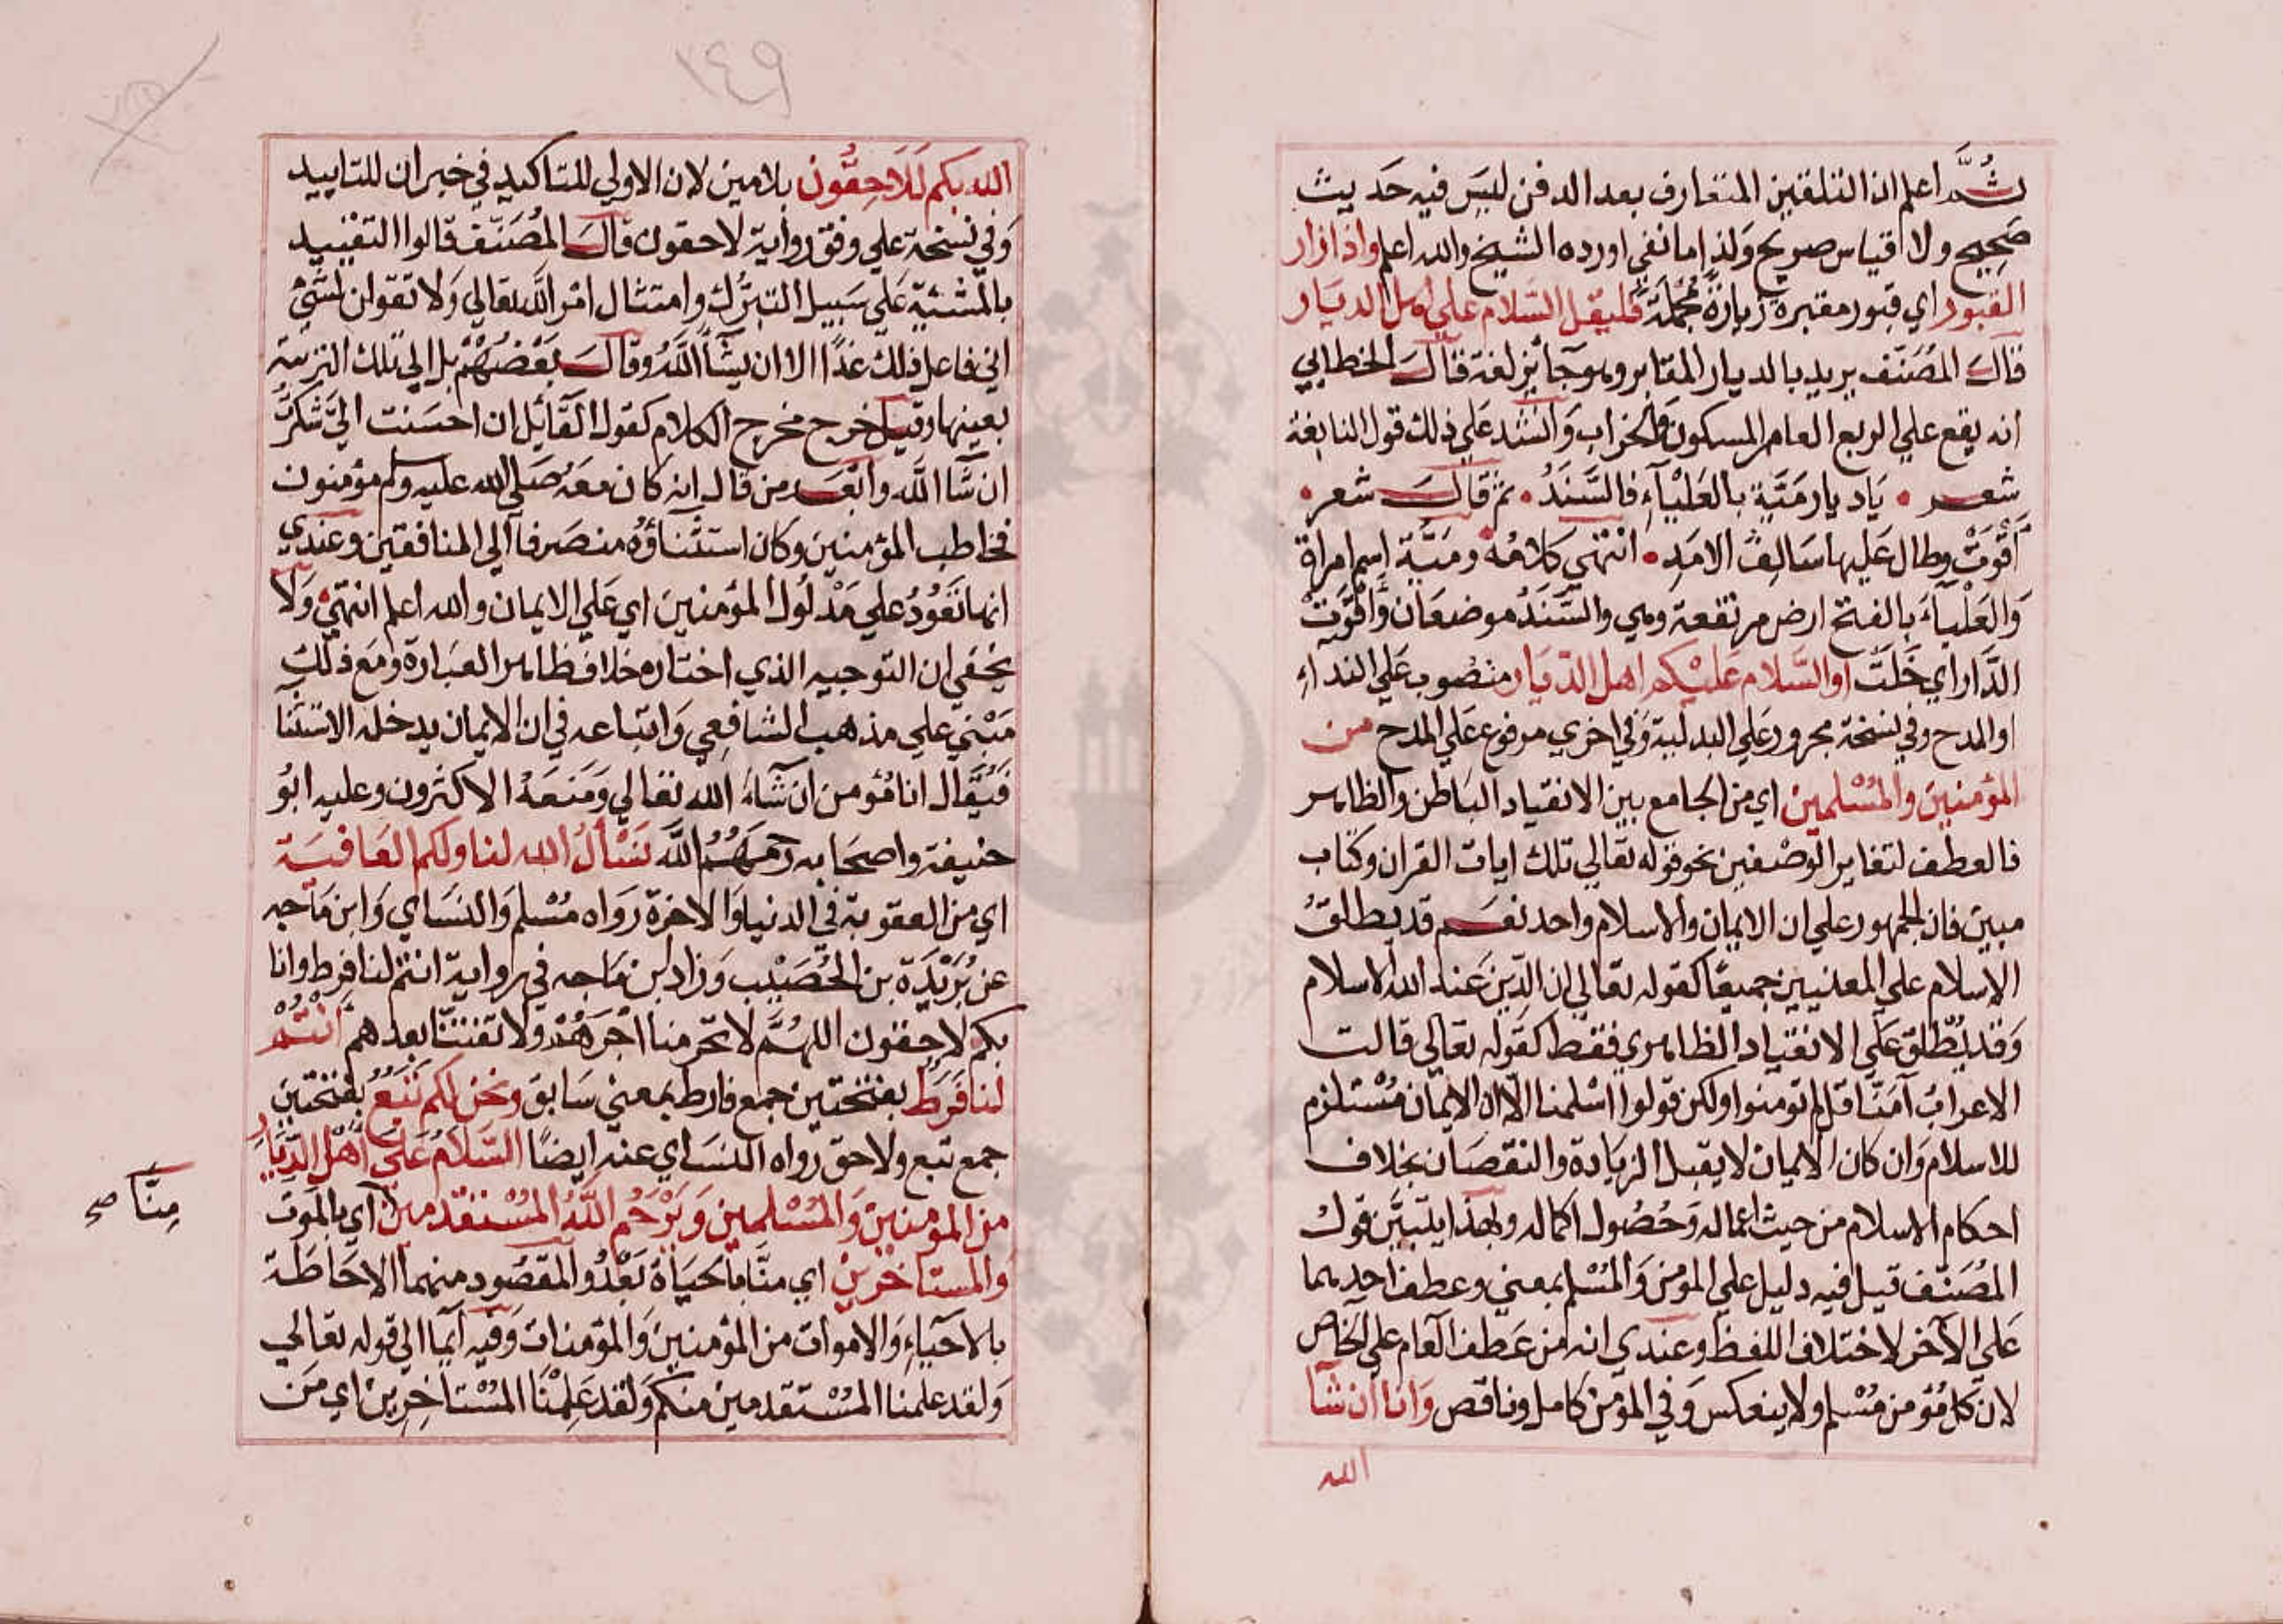 ثمَّ اعلم ان التلقين المتعارف بعد الدفن ليس فيه حديث
صحيح ولا قياس صريح ولذا ما نفي اورده الشيخ والله اعلم واذا زار
القبور اي قبور مقبرة زيارة مجملة فليقل السلام علي اهل الديار
قال المُصَنّف يريد بالديار المقابر وهو جائز لغة قال الخطابي
انه يقع علي الربع العامر المسكون والخراب وانشد علي ذلك قول النابغة
شعر • يَا ديار مَيَّة بالعَلْيَآءِ فالسَّنَدُ • ثم قال شعر •
أَقْوَتْ وطال عَليها سَالِفُ الامَدِ • انتهي كلامُه ومَيَّة اسم امراة
وَالعَلْيآءَ بالفتح ارض مرتفعة وهي والسَّنَدُ موضعَان وَأَقْوَتْ
الدَّار اي خَلَتْ او السَّلام عَليْكم اهل الدّيَار منصُوب عَلي النداءِ
او المدح وفي نسخة مجرور عَلي البدلية وَفي اخري مرفوع عَلي المدح من
المؤمنين والمُسْلمين اي من الجامع بين الانقياد الباطن والظاهر
فالعطف لتغاير الوصْفين نحو قوله تعَالي تلك ايات القران وكتاب
مبين فان الجمهور علي ان الايمان والاسلام واحد نعَم قد يطلقُ
الاسلام علي المعنيين جميعًا كقوله تعَالي ان الدّين عَند الله الاسلام
وَقد يُطْلق عَلي الانقياد الظاهري فقط كقَوله تعَالي قالت
الاعرابُ آمَنَّا قل لم تومنوا ولكن قولوا اسْلمنا الّا ان الايمان مُسْتلزم
للاسلام وَان كان الايمان لا يقبل الزيَادة والنقصَان بخلاف
احكام الاسلام من حيث اعماله وَحُصُول اكماله وبهذا يتبيَّن قول
المُصَنّف قيل فيه دليل علي المومن وَالمُسْلم بمعني وعطف احدهما
عَلي الآخر لاختلاف اللفظ وعندي انه من عَطف العَام علي الخاص
لان كل مُؤمن مُسْلم ولا ينعكس وَفي المؤمن كامل وناقص وَانا ان شآ
الله
١٤٩
الله بكم لَلَاحِقُون بلامين لان الاولي للتاكيد في خبر ان للتاييد
وَفي نسخة علي وفق رواية لاحقون قال المُصَنّف قالوا التقييد
بالمشيّة عَلي سَبيل التبرُّك وامتثال امْر الله تعَالي وَلا تقولن لشئ
اني فاعل ذلك غدًا الا ان يشآ اللَّهُ وقال بَعْضُهُمْ بل الي تلك التربة
بعينها وقيل خرج مخرج الكلام كقول القائل ان احسَنت اليَّ شكرتُ
ان شَا الله وابعَد من قال انه كان معَهُ صَلي الله عليه وسلم مؤمنون
فخاطب المؤمنين وكان استثناؤهُ منصَرفا الي المنافقين وعندي
انها تعُودُ علي مَدْلُول المؤمنين اي عَلي الايمان والله اعلم انتهي وَلا
يخفي ان التوجيه الذي اختاره خلاف ظاهر العبَارة ومَع ذلك
مَبْني علي مذهب الشافِعي وَاتباعه في ان الايمان يدخله الاسْتثنَا
فيُقال انا مُؤمن ان شآءَ الله تعَالي ومَنعَهُ الاكثرون وعليه ابُو
حنيفة واصحَابه رَحمَهُمُ اللَّه نَسْأل الله لنا ولكم العَافيَة
اي من العقوبة في الدنيا وَالاخرة رَوَاه مُسْلم وَالنسَاي وَابن مَاجه
عن بُرَيْدَة بن الحُصَيْب وَزاد ابن مَاجه في رواية انتم لنا فرط وانا
بكم لاحِقون اللهُمَّ لا تحرمنا اجْرَهُمْ ولا تفتنّا بعدهم أنْتُمْ
لنا فَرَطٌ بفتحتين جمع فارط بمعني سَابق وَنحن لكم تَبَعٌ بفتحتين
جمع تبع ولاحق رواه النسَاي عنه ايضًا السَّلَامُ عَلَي أهْل الدِّيَار
من المومنين وَالمُسْلمين وَيَرْحَم اللَّهُ المُسْتقدمين اي بالموت
مِنَّا صح
والمستاخرين اي منَّا بالحيَاة بَعْدُ والمقصُود منهما الاحَاطَة
بالاحيَاءِ وَالاموات من المؤمنين وَالمؤمنات وَفيه ايماَ الي قوله تعَالي
وَلقد علمنا المُسْتقدمين منكم وَلقد عَلمْنَا المُسْتاخِرين اي مَن